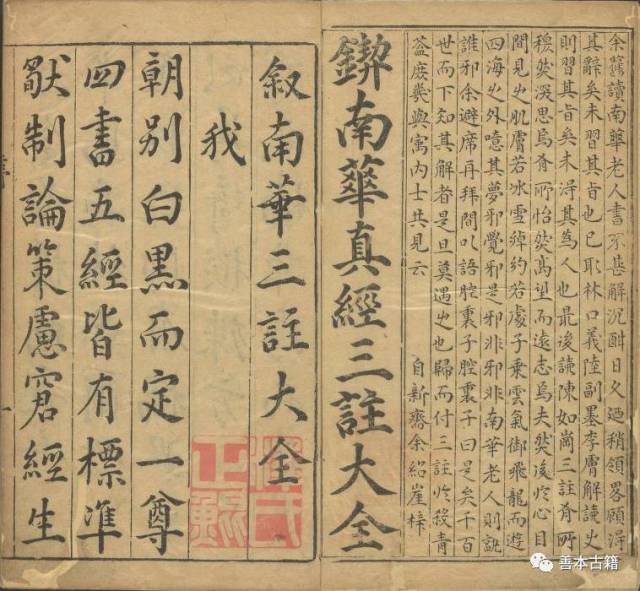 余舊讀南華老人書不甚解沉酣日久廼稍領畧顧淂
其辭矣未習其旨也已耴林口義陸副墨李膚解讀之
則習其旨矣未淂其為人也最後讀陳如崗三註有所
穆然深思焉有所怡然高望而遠志焉夫然後於心目
間見之肌膚若冰雪綽約若處子乘雲氣御飛龍而遊
四海之外噫其夢邪覺邪是邪非邪非南華老人則
誰邪余避席再拜問以語腔裏子腔裏子曰是矣千百
世而下知其解者是旦莫遇之也歸而付三註於殺青
葢庶幾與寓內士共見云
自新齋余紹崖梓
鍥南華真經三註大全
叙南華三註大全
我
朝別白黑而定一尊
四書五經皆有標準
制論策慮窘經生
一
善本古籍